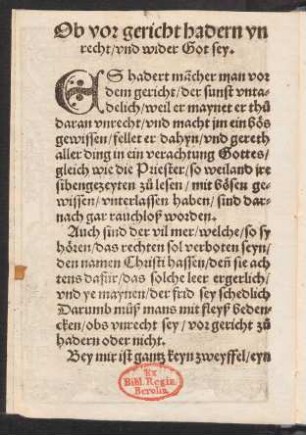 Ob vor gericht hadern vn
recht/vnd wider Got sey.
ES hadert mācher man vor
dem gericht/der sunst vnta-
delich/weil er maynet er thū
daran vnrecht/vnd macht jm ein bōs
gewissen/fellet er dahyn/vnd gereth
aller ding in ein verachtung Gottes/
gleich wie die Priester/so weiland jre
sibengezeyten zů lesen/mit bōsen ge-
wissen/vnterlassen haben/sind dar-
nach gar rauchloß worden.
Auch sind der vil mer/welche/so sy
hōren/das rechten sol verboten seyn/
den namen Christi hassen/deñ sie ach
tens dafür/das solche leer ergerlich/
vnd ye maynen/der frid sey schedlich
Darumb můß mans mit fleyß beden-
cken/obs vnrecht sey/vor gericht zů
hadern oder nicht.
Bey mir ist gantz keyn zweyffel/eyn
Ex
Bibl. Regia
Berolin.